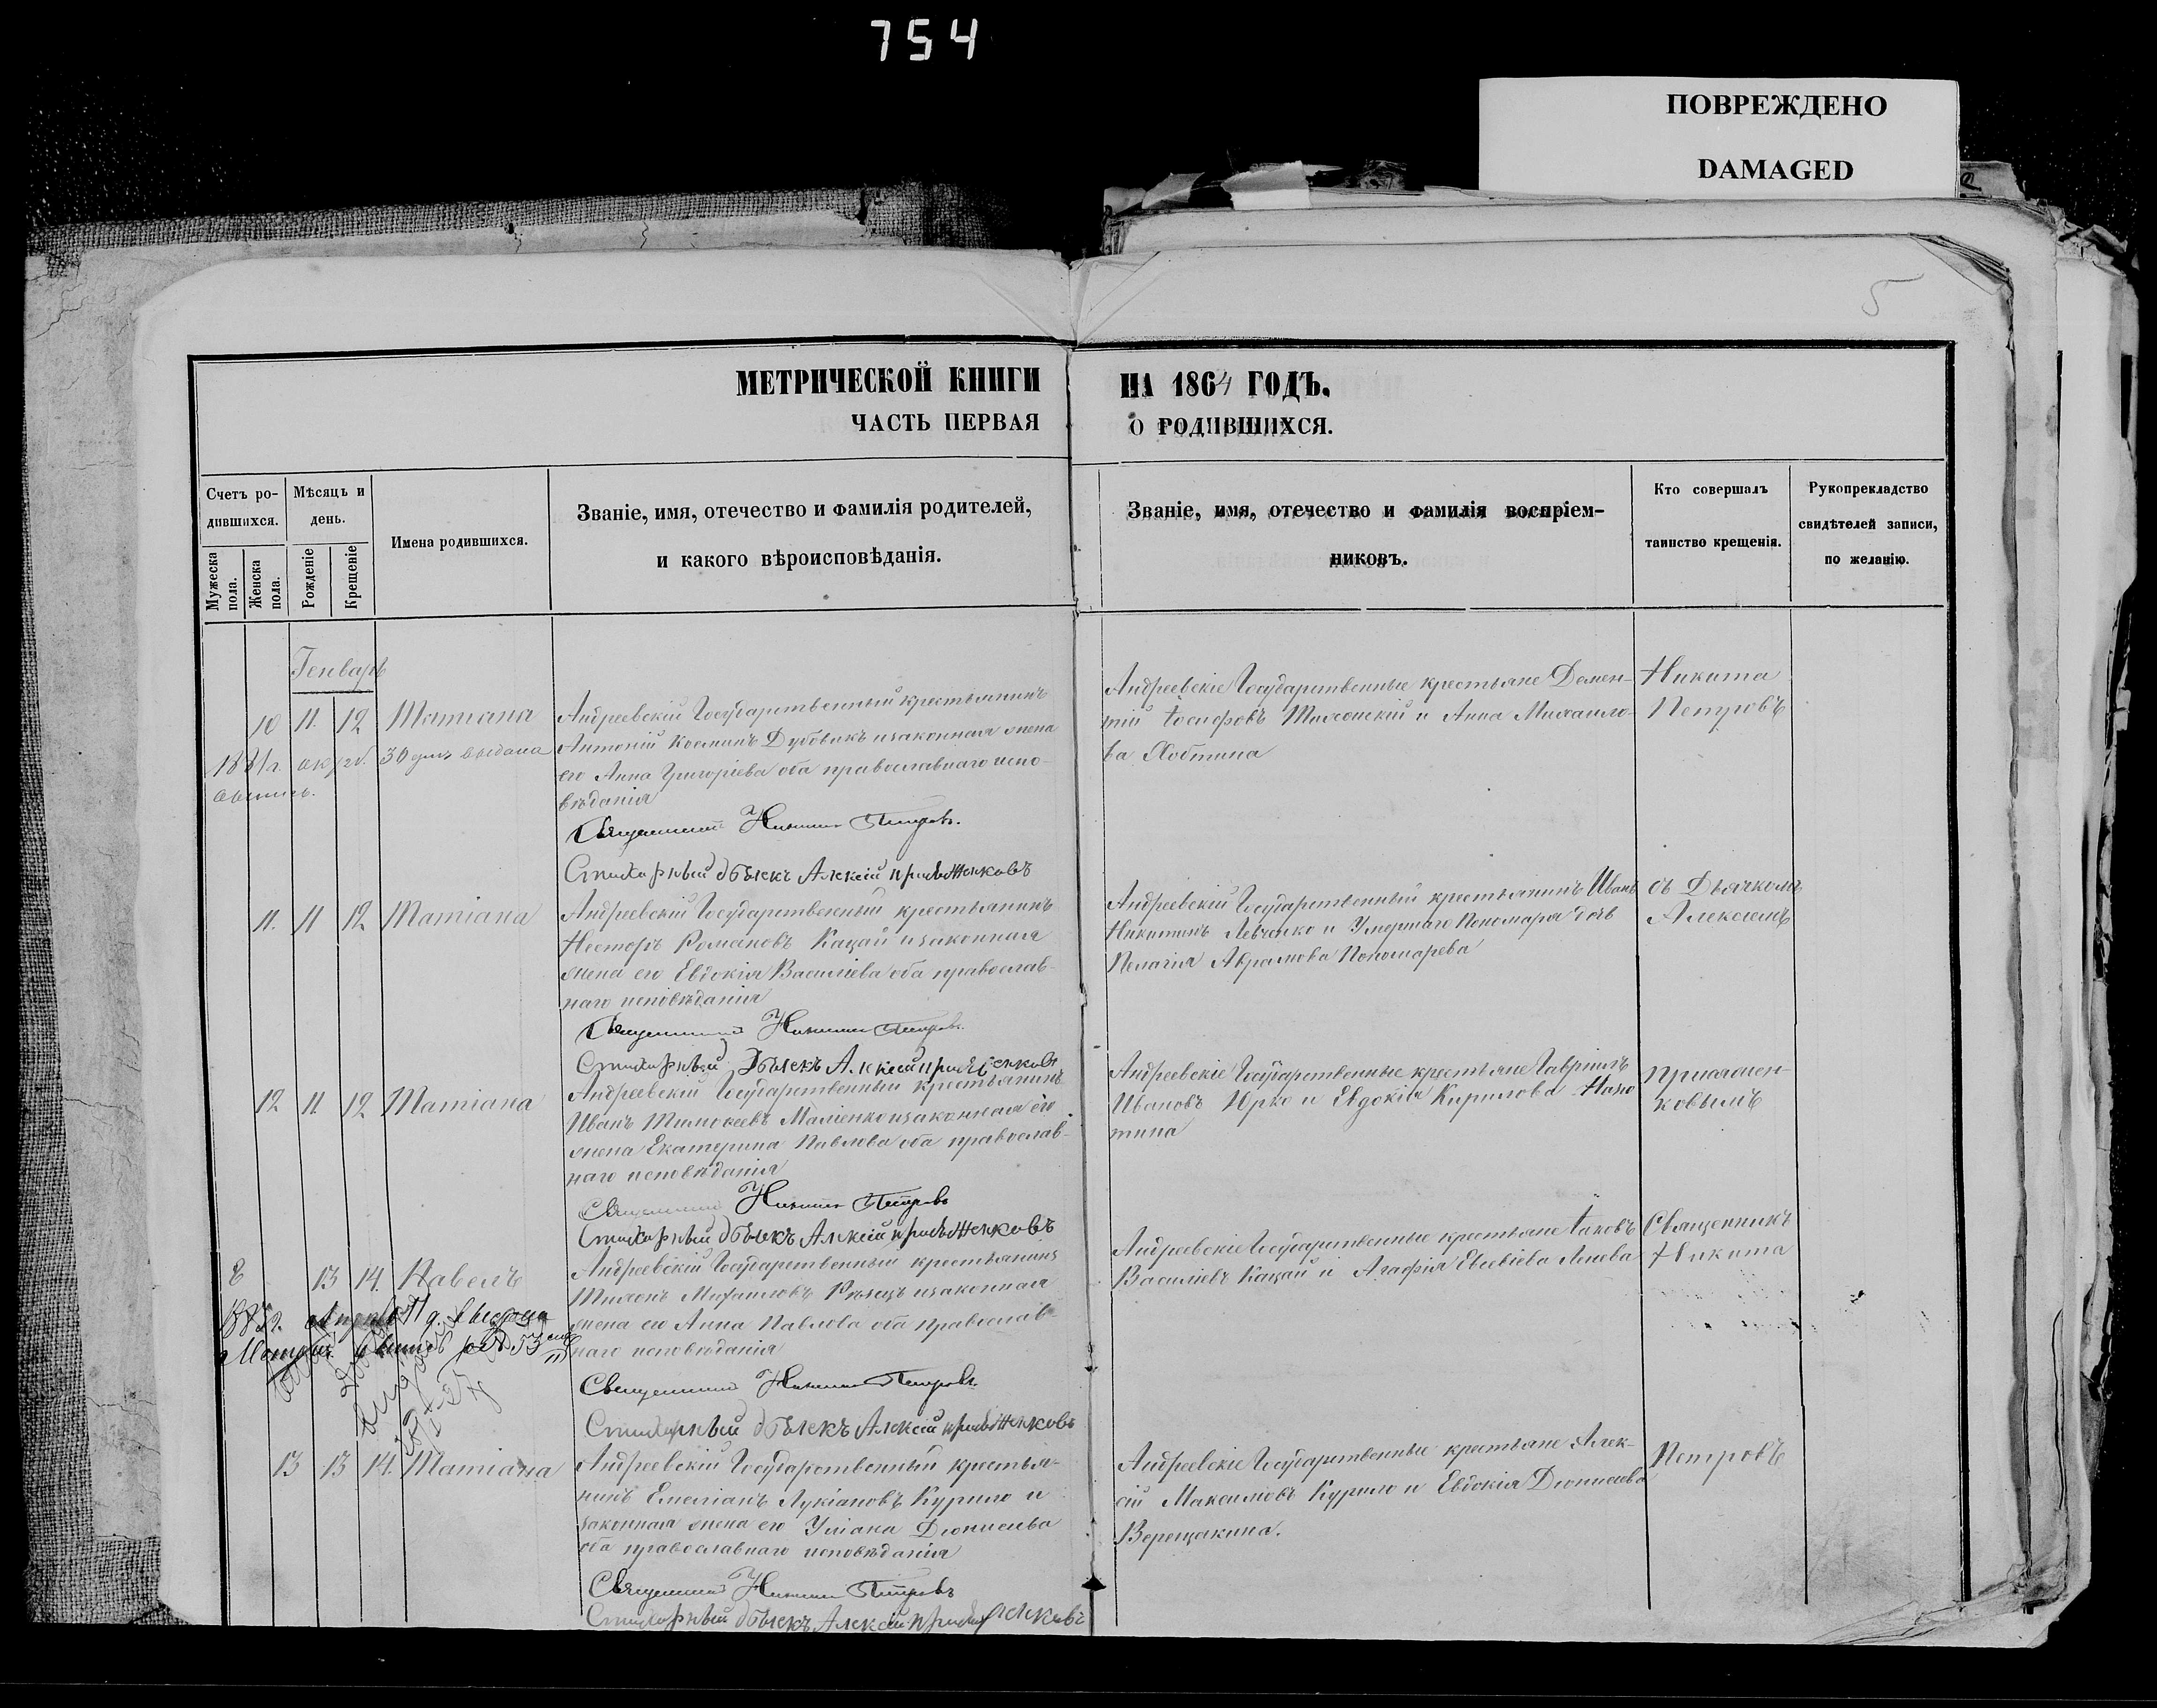 754
ПОВРЕЖДЕНО
DAMAGED
5
МЕТРИЧЕСКОЙ КНИГИ НА 1864 ГОДЪ.
ЧАСТЬ ПЕРВАЯ О РОДИВШИХСЯ.
Счетъ ро-
дившихся.
Мужеска пола.
Женска пола.
Мѣсяцъ и
день.
Рожденіе
Крещеніе
Имена родившихся.
Званіе, имя, отечество и фамилія родителей,
и какого вѣроисповѣданія.
Званіе, имя, отечество и фамилія воспріем-
никовъ.
Кто совершалъ
таинство крещенія.
Рукоприкладство
свидѣтелей записи,
по желанію.
Генварь
10 11. 12 Татіана
Андреевскій Государственный крестьянинъ
Антоній Косминъ Дубовикъ изаконная жена
его Анна Григоріева оба православнаго испо-
вѣданія
Священникъ Никита Петровъ.
Стихарный дьячекъ Алексій
Андреевскіе Государственные крестьяне Демен-
тій Іосифовъ и Анна Михаило-
ва
Никита
Петровъ
1881 г. 30 выдана
11. 11 12 Татіана
Андреевскій Государственный крестьянинъ
Несторъ Романовъ Кацай изаконная
жена его Евдокія Василіева оба православ-
наго исповѣданія
Священникъ Никита Петровъ.
Стихарный дьячекъ Алексій
Андреевскій Государственный крестьянинъ Иванъ
Никитинъ Левченко и Умершаго Пономаря дочь
Пелагія Аврамова Пономарева
съ Дьячкомъ
Алексіемъ
12 11 12 Татіана
Андреевскій Государственный крестьянинъ
Иванъ Тимофеевъ Маліенко изаконная его
жена Екатерина Павлова оба православ-
наго исповѣданія
Священникъ Никита Петровъ
Стихарный дьячекъ Алексій
Андреевскіе Государственные крестьяне Гавріилъ
Ивановъ Юрко и Евдокія Кирилова
тина
ковымъ
8 13 14. Павелъ
Андреевскій Государственный крестьянинъ
Михаиловъ изаконная
жена его Анна Павлова оба православ-
наго исповѣданія
Священникъ Никита Петровъ.
Стихарный дьячекъ Алексій
Андреевскіе Государственные крестьяне Іаковъ
Василіевъ Кацай и Агафія Евсевіева
Священникъ
Никита
13 13 14. Татіана
Андреевскій Государственный крестья-
нинъ Емеліанъ Лукіановъ Курило и
законная жена его Діонисіева
оба православнаго исповѣданія
Священникъ Никита Петровъ
Стихарный дьячекъ Алексій
Андреевскіе Государственные крестьяне Алек-
сій Максимовъ Курило и Евдокія Діонисіева
Верещакина.
Петровъ